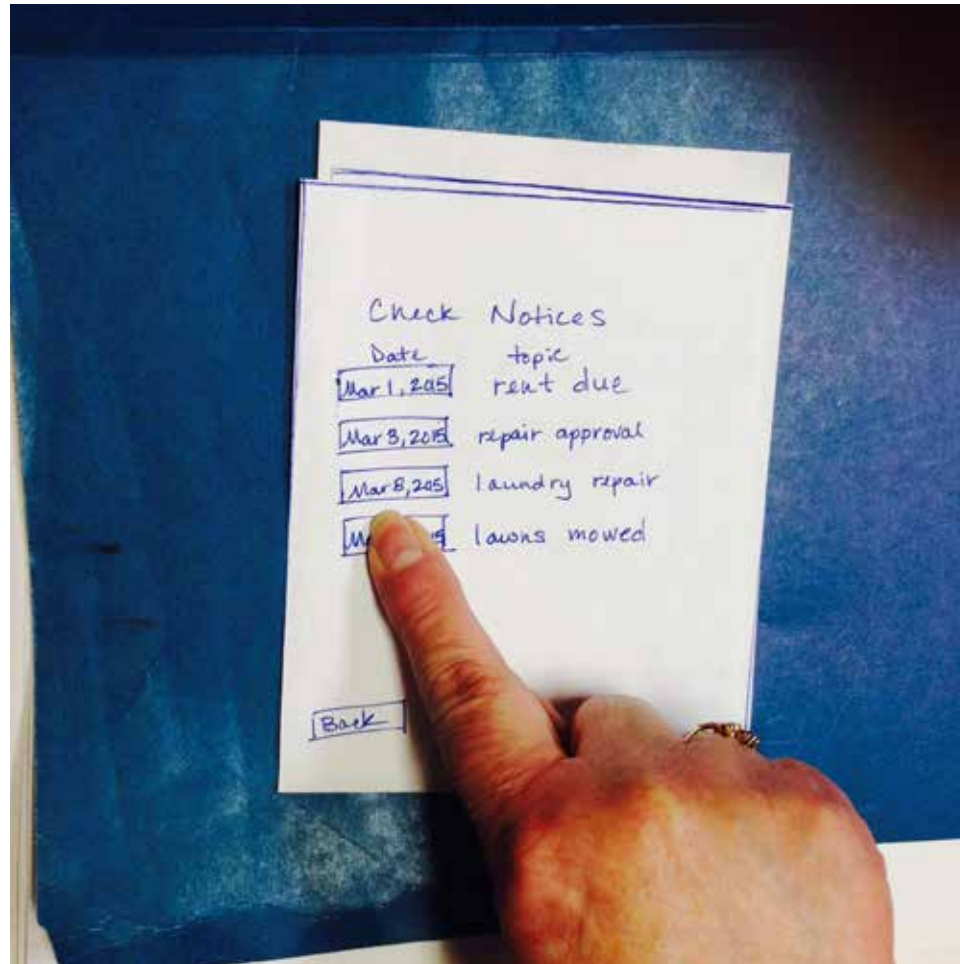 Check Notices
Date topic
Mar 1, 2015 rent due
Mar 3, 2015 repair approval
Mar 8, 2015 laundry repair
lawns mowed
Back